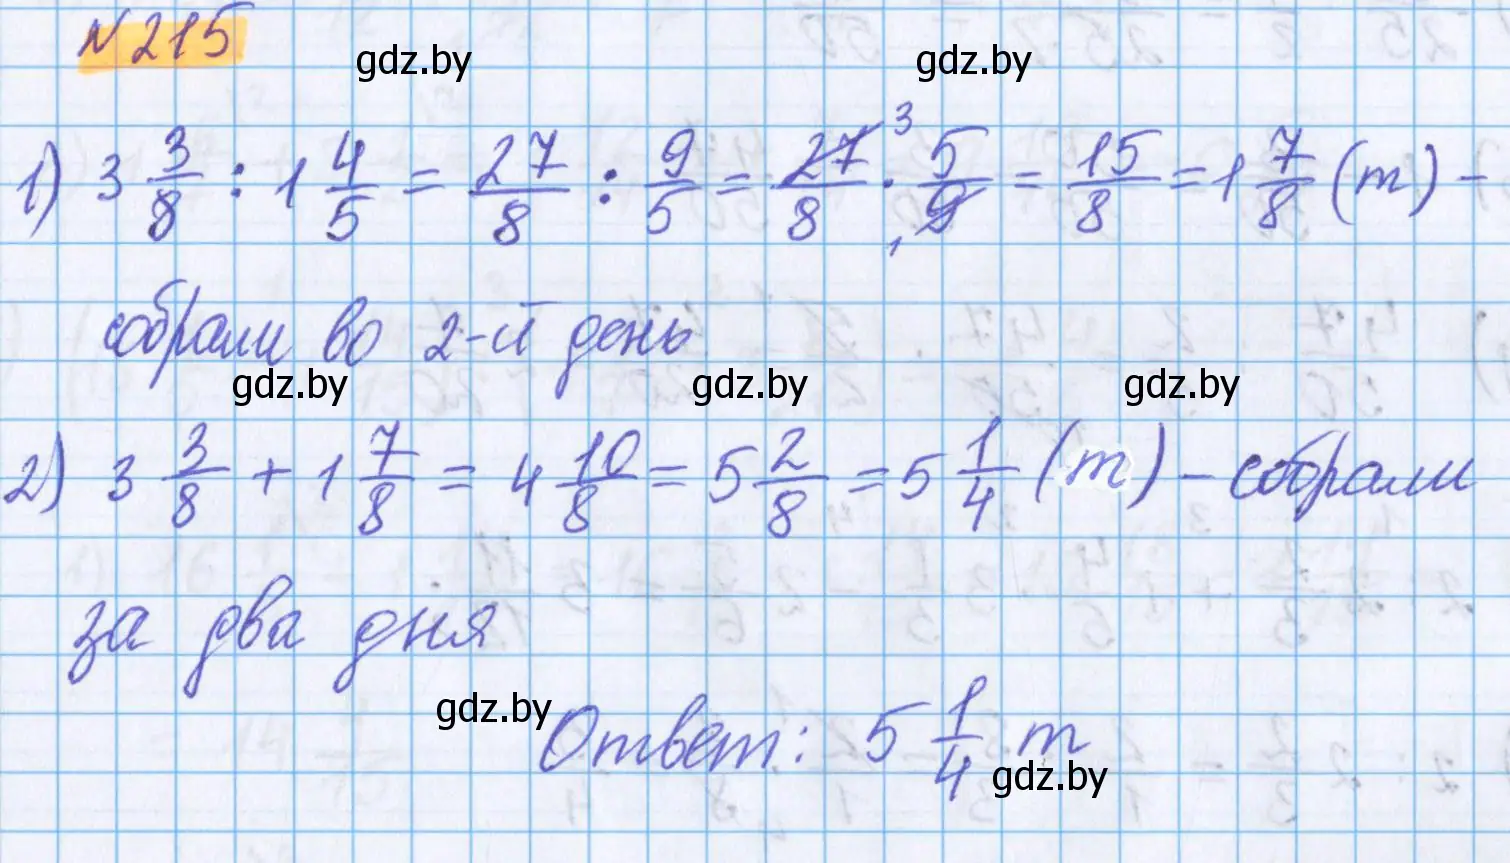 № 215
gdz.by gdz.by
1) 3 3/8 : 1 4/5 = 27/8 : 9/5 = 27/8 · 5/9 (3, 1) = 15/8 = 1 7/8 (т) –
собрали во 2-й день
gdz.by gdz.by gdz.by
2) 3 3/8 + 1 7/8 = 4 10/8 = 5 2/8 = 5 1/4 (т) – собрали
за два дня
gdz.by
Ответ: 5 1/4 т
gdz.by